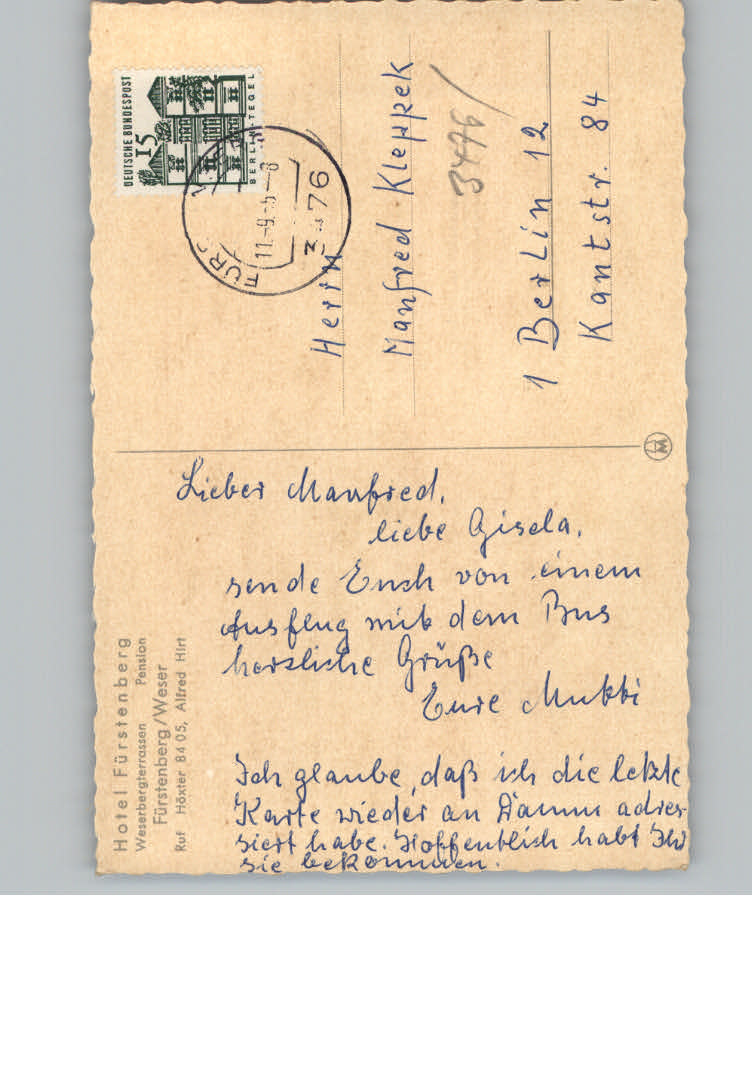 Hotel Fürstenberg
Weserbergterrassen Pension
Fürstenberg/Weser
Ruf Höxter 84 05, Alfred Hirt
Lieber Manfred,
liebe Gisela,
sende Euch von einem
Ausflug mit dem Bus
herzliche Grüße
Eure Mutti
Ich glaube, daß ich die letzte
Karte wieder an Damm adres-
siert habe. Hoffentlich habt Ihr
sie bekommen.
DEUTSCHE BUNDESPOST
15
BERLIN-TEGEL
FÜR
11.-9.
3476
3476/
Herrn
Manfred Kleppek
1 Berlin 12
Kantstr. 84